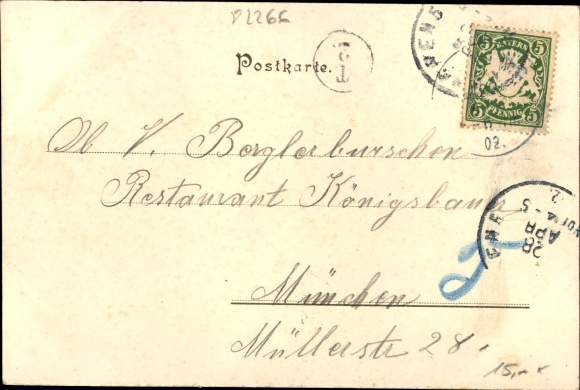 P2266
Postkarte.
T
5 BAYERN 5
5 PFENNIG 5
02.
28
APR
4-5
V. Berglerburschen
Restaurant Königsbau
München
Müllerstr 28.
15,-